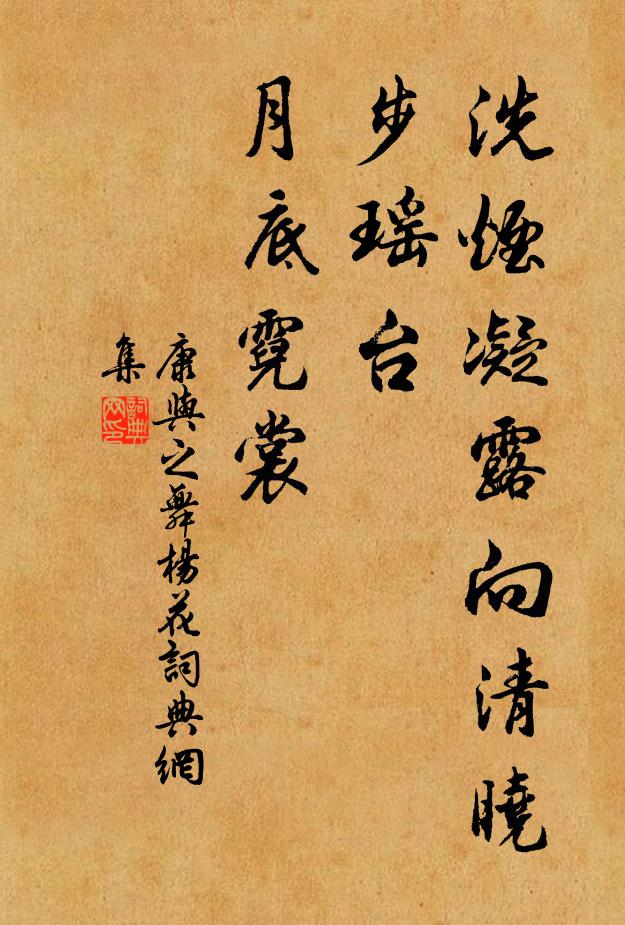 洗煙凝露向清曉
步瑤台
月底霓裳
康與之舞楊花詞典網
集
詞典网印